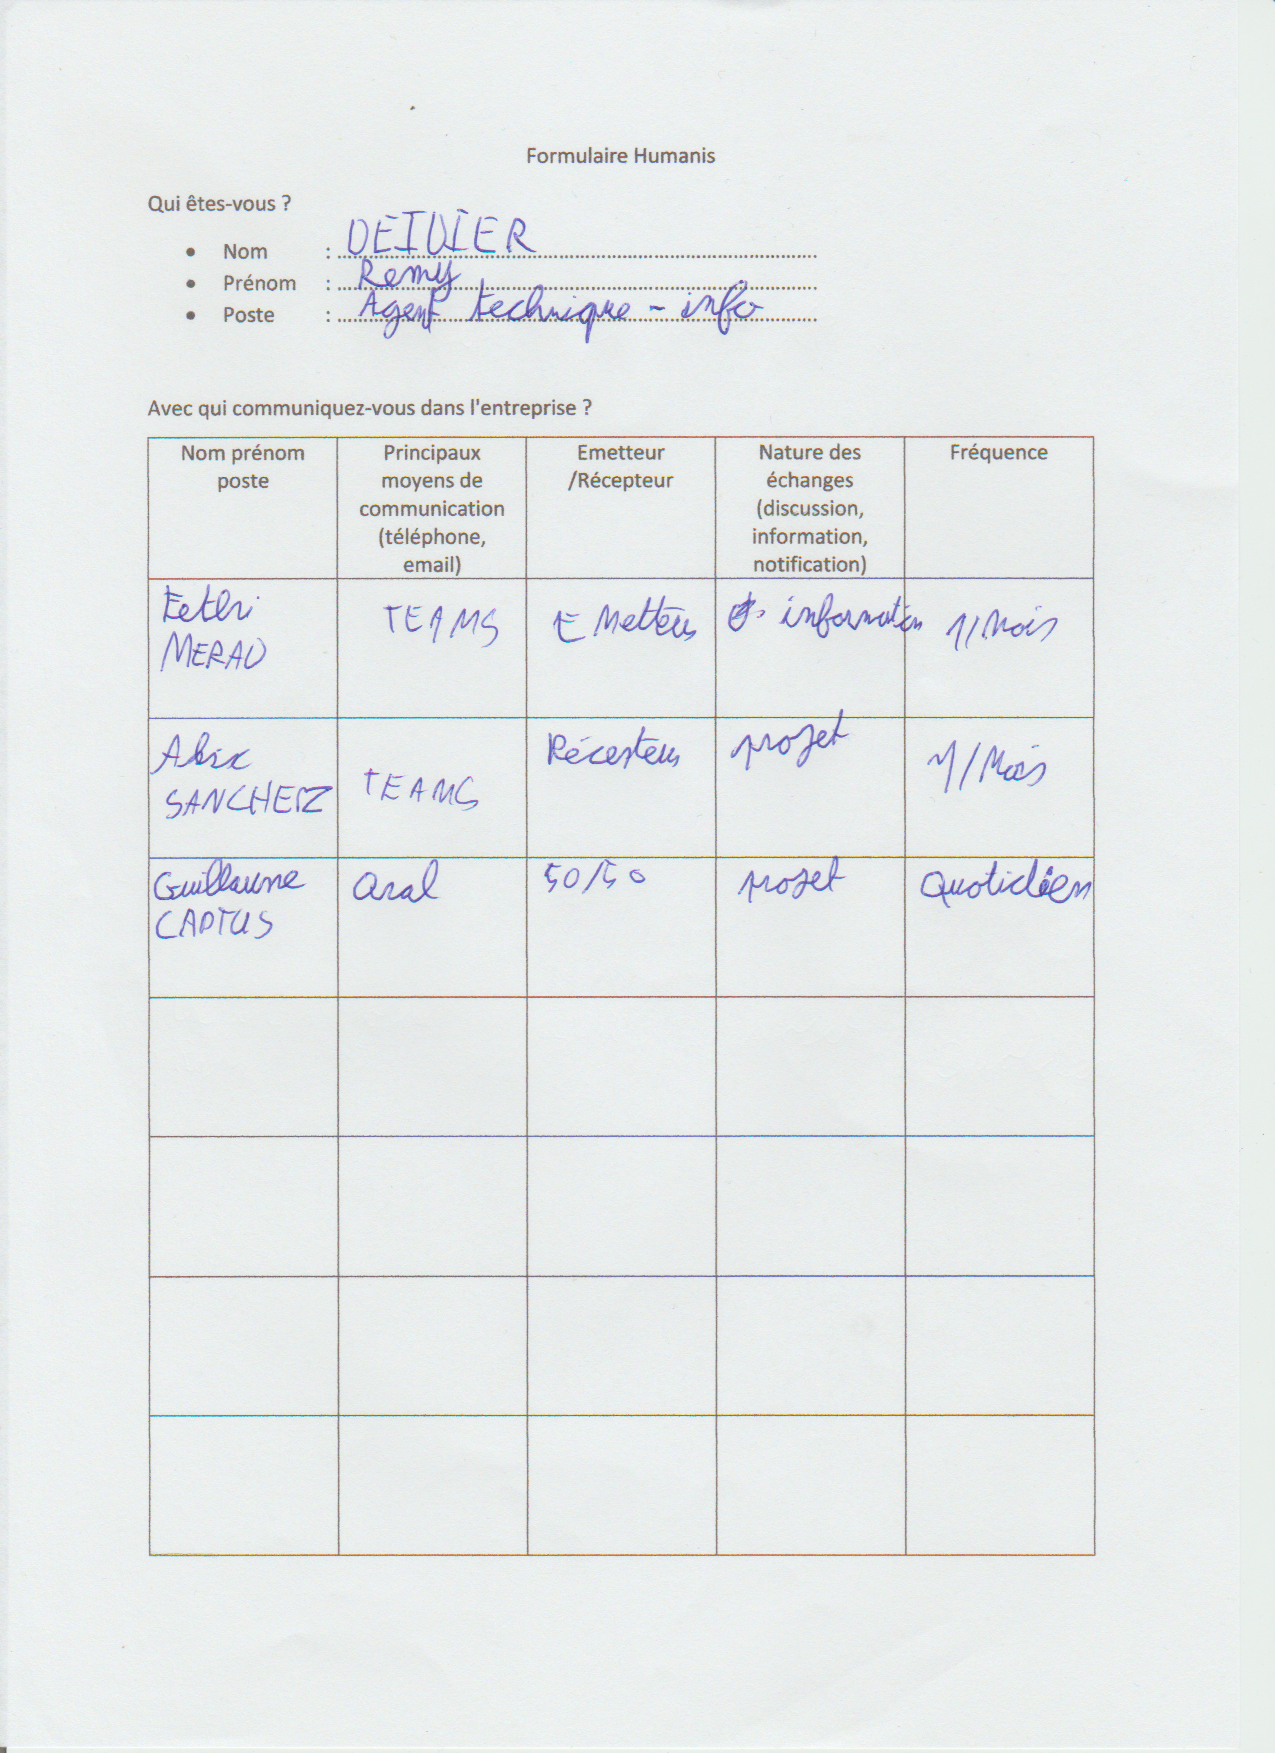 Formulaire Humanis
Qui êtes-vous ?
• Nom : DEIVIER
• Prénom : Remy
• Poste : Agent technique - info
Avec qui communiquez-vous dans l'entreprise ?
Nom prénom
poste
Principaux
moyens de
communication
(téléphone,
email)
Emetteur
/Récepteur
Nature des
échanges
(discussion,
information,
notification)
Fréquence
MERAD
TEAMS
EMetteur
information
1/Mois
SANCHEIZ
TEAMS
Récepteur
projet
1/Mois
Guillaume
oral
50/50
projet
Quotidien